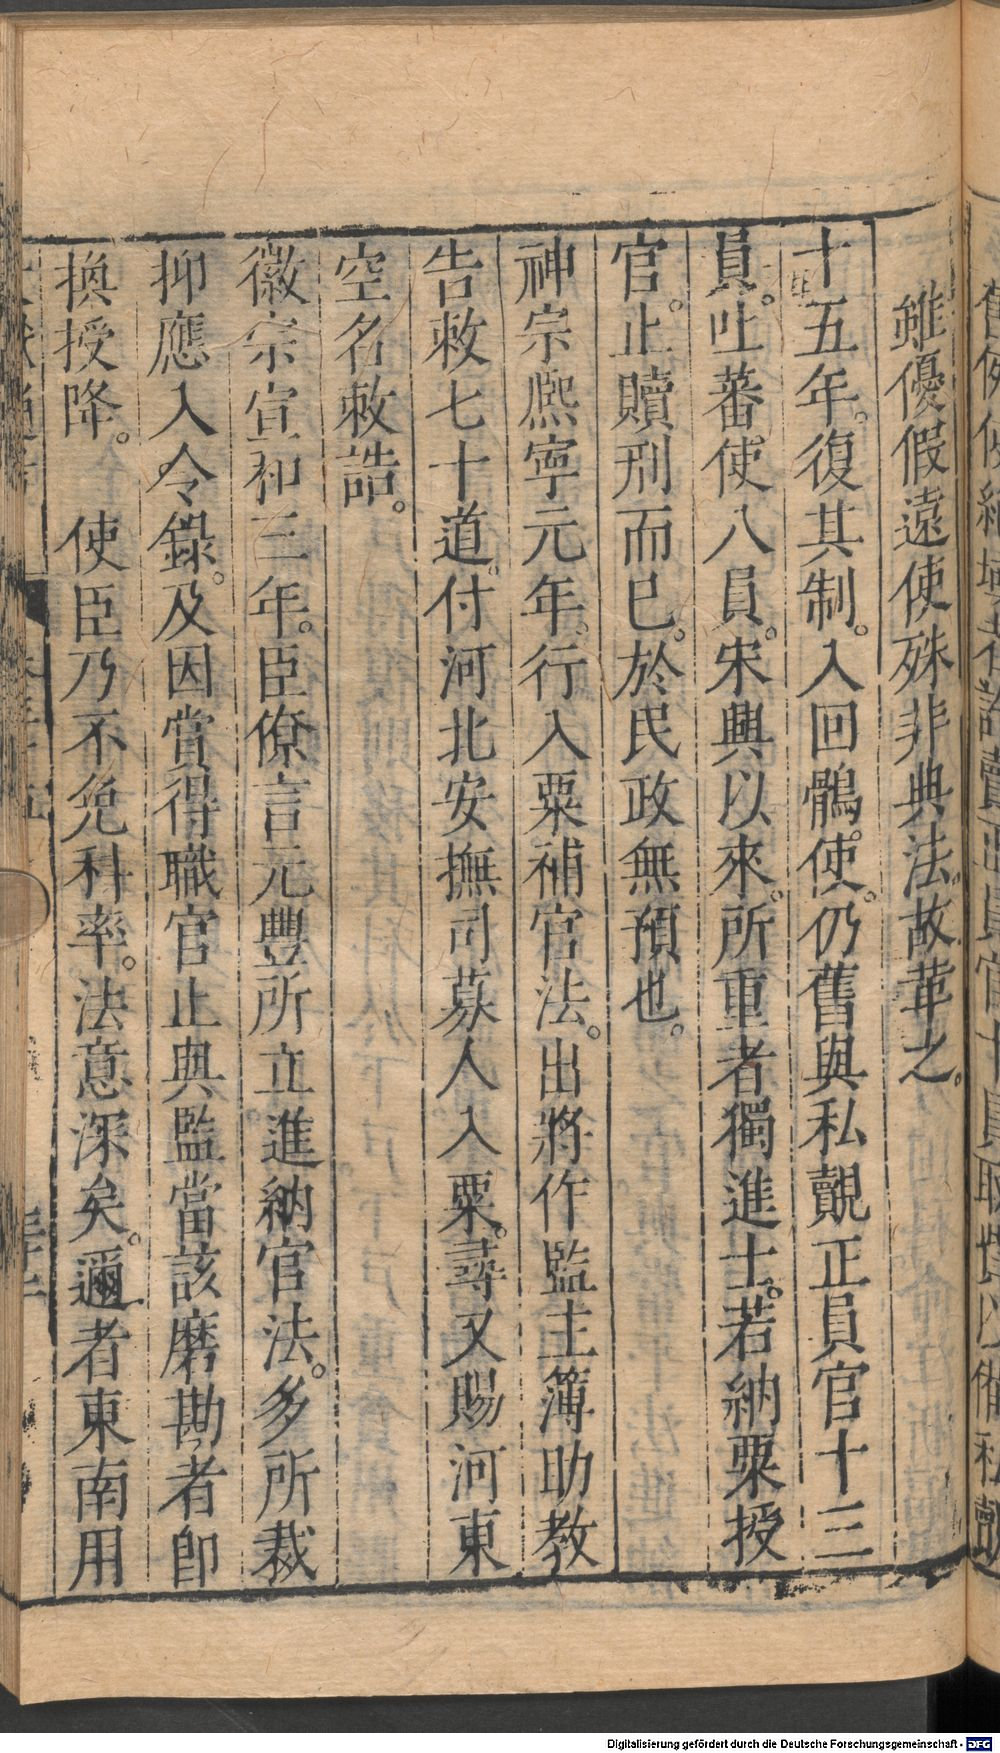 雖優假遠使殊非典法故革之。
十五年。復其制。入回鶻使。仍舊與私覿正員官十三
員。吐蕃使八員。宋興以來。所重者獨進士。若納粟授
官。止贖刑而已。於民政無預也。
神宗熈寧元年。行入粟補官法。出將作監主簿助教
告敕七十道。付河北安撫司募人入粟。尋又賜河東
空名敕誥。
徽宗宣和三年。臣僚言元豐所立進納官法。多所裁
抑應入令錄。及因賞得職官止與監當該磨勘者卽
換授降。 使臣乃不免科率。法意深矣。邇者東南用
Digitalisierung gefördert durch die Deutsche Forschungsgemeinschaft - DFG